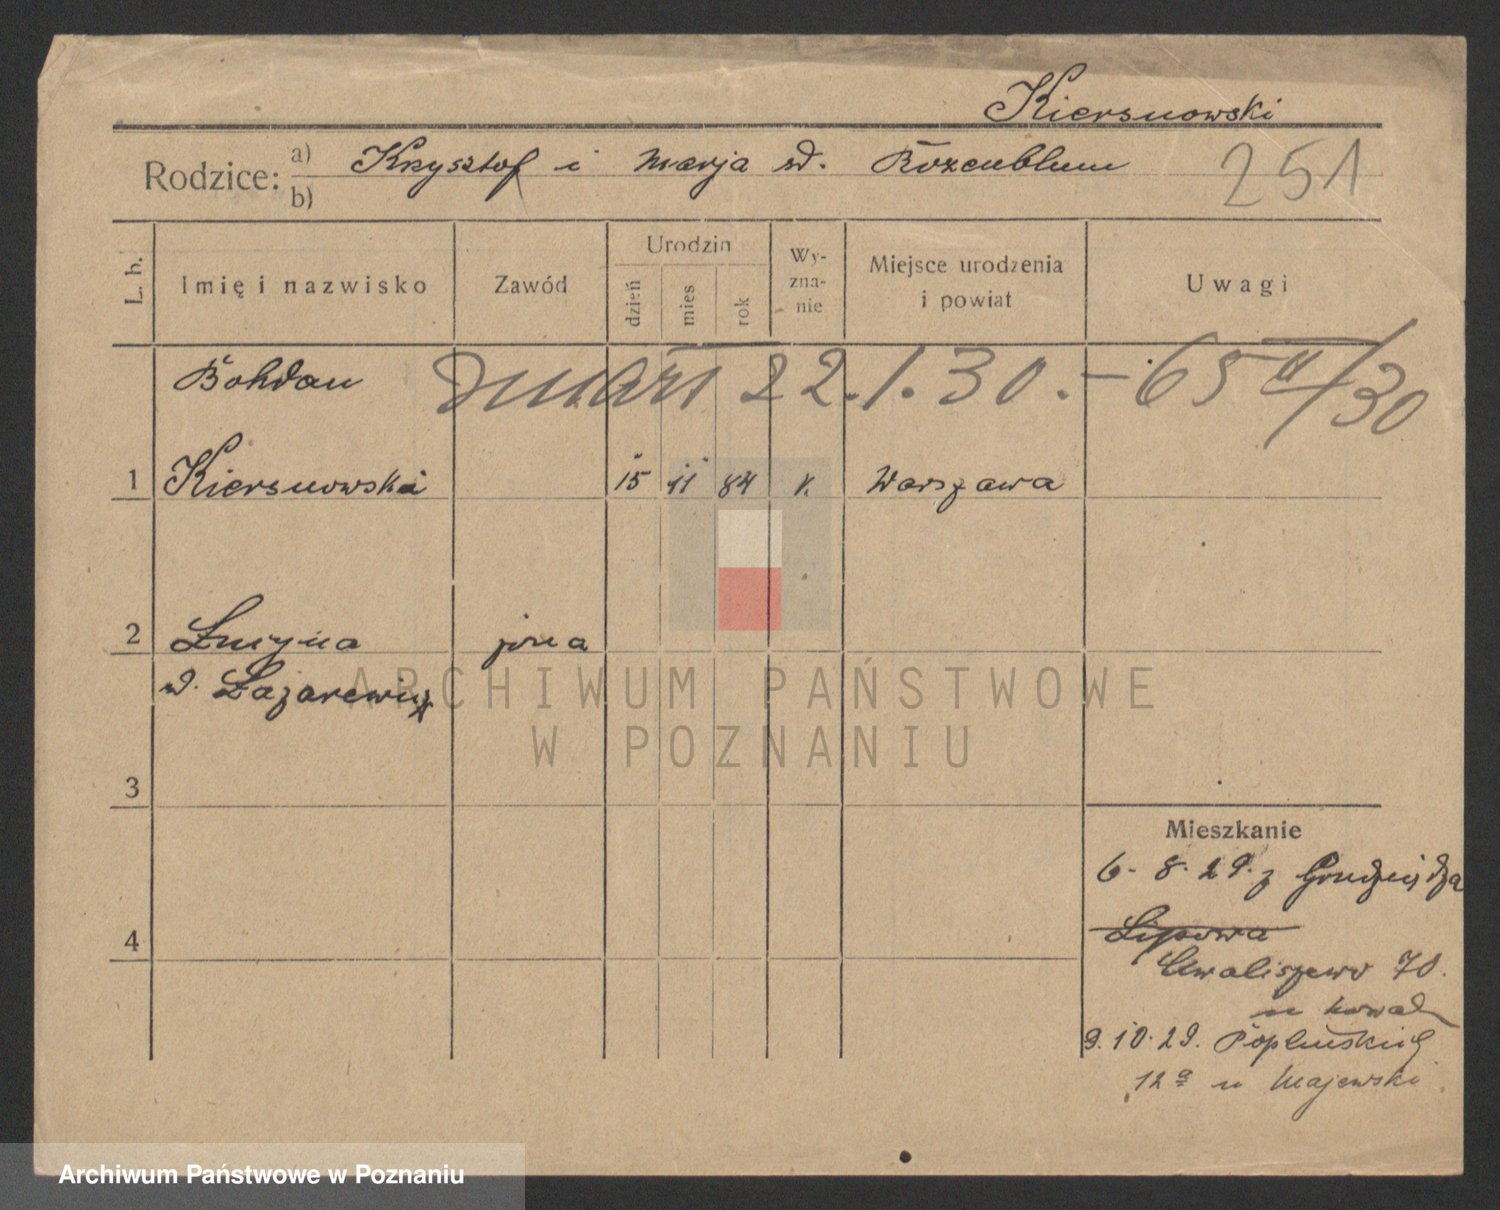 Kiersnowski
Rodzice: a) Krzysztof i Marja w. Rozenblum 251
b)
L. b. Imię i nazwisko Zawód Urodzin dzień mies rok Wyznanie Miejsce urodzenia i powiat Uwagi
Bohdan zmarł 22.1.30. - 65 II/30
1 Kiersnowski 15 11 84 k. Warszawa
2 żona
Łazarewicz
3
Mieszkanie
6. 8. 29. z Grudziądza
4
Lipowa
Chwaliszewo 70.
u Nowak
9.10.29. Poplińskich
12a u Majewski
ARCHIWUM PAŃSTWOWE
W POZNANIU
Archiwum Państwowe w Poznaniu